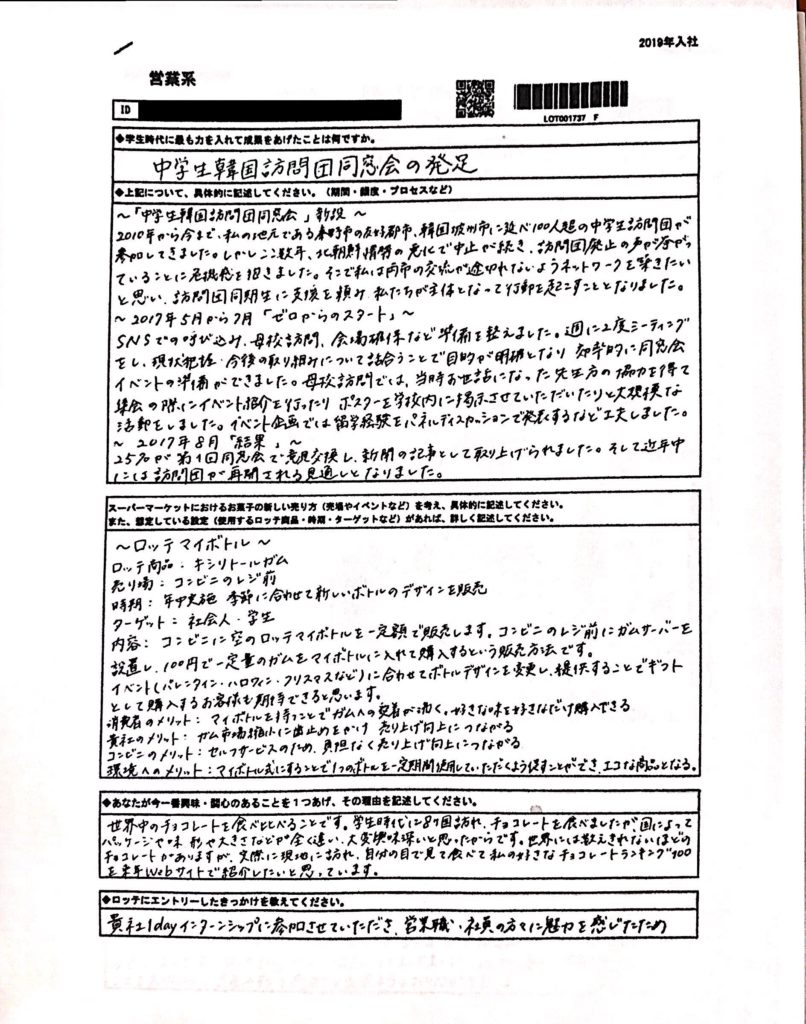 2019年入社
営業系
ID
LOT001737 F
◆学生時代に最も力を入れて成果をあげたことは何ですか。
中学生韓国訪問団同窓会の発足
◆上記について、具体的に記述してください。（期間・頻度・プロセスなど）
～「中学生韓国訪問団同窓会」新設～
2010年から今まで、私の地元である秦野市の友好都市、韓国坡州市に延べ100人超の中学生訪問団が
参加してきました。しかしここ数年、北朝鮮情勢の悪化で中止が続き、訪問団廃止の声が浮かっ
ていることに危機感を抱きました。そこで私は両市の交流が途切れないようネットワークを築きたい
と思い、訪問団同期生に支援を頼み、私たちが主体となって行動を起こすこととなりました。
～2017年5月から7月「ゼロからのスタート」～
SNSでの呼び込み、母校訪問、会場確保など準備を整えました。週に2度ミーティング
をし、現状把握・今後の取り組みについて話合うことで目的が明確となり、効率的に同窓会
イベントの準備ができました。母校訪問では、当時お世話になった先生方の協力を得て
集会の際にイベント紹介を行ったり、ポスターを学校内に掲示させていただいたりと大規模な
活動をしました。イベント企画では留学経験をパネルディスカッションで発表するなど工夫しました。
～2017年8月「結果」～
25名が第1回同窓会で意見交換し、新聞の記事として取り上げられました。そして近年中
には訪問団が再開される見通しとなりました。
スーパーマーケットにおけるお菓子の新しい売り方（売場やイベントなど）を考え、具体的に記述してください。
また、想定している設定（使用するロッテ商品・時期・ターゲットなど）があれば、詳しく記述してください。
～ロッテマイボトル～
ロッテ商品：キシリトールガム
売り場：コンビニのレジ前
時期：年中実施 季節に合わせて新しいボトルのデザインを販売
ターゲット：社会人・学生
内容：コンビニに空のロッテマイボトルを一定額で販売します。コンビニのレジ前にガムサーバーを
設置し、100円で一定量のガムをマイボトルに入れて購入するという販売方法です。
イベント（バレンタイン・ハロウィン・クリスマスなど）に合わせてボトルデザインを変更し、提供することでギフト
として購入するお客様も期待できると思います。
消費者のメリット：マイボトルを持つことでガムへの愛着が湧く。好きな味を好きなだけ購入できる
貴社のメリット：ガム市場縮小に歯止めをかけ 売り上げ向上につながる
コンビニのメリット：セルフサービスのため、負担なく売り上げ向上につながる
環境へのメリット：マイボトル式にすることで1つのボトルを一定期間使用していただくよう促すことができ、エコな商品となる。
◆あなたが今一番興味・関心のあることを1つあげ、その理由を記述してください。
世界中のチョコレートを食べ比べることです。学生時代に8ヶ国訪れ、チョコレートを食べましたが国によって
パッケージや味、形や大きさなどが全く違い、大変興味深いと思ったからです。世界には数えきれないほどの
チョコレートがありますが、実際に現地に訪れ、自分の目で見て食べて私の好きなチョコレートランキング100
を来年Webサイトで紹介したいと思っています。
◆ロッテにエントリーしたきっかけを教えてください。
貴社1dayインターンシップに参加させていただき、営業職・社員の方々に魅力を感じたため